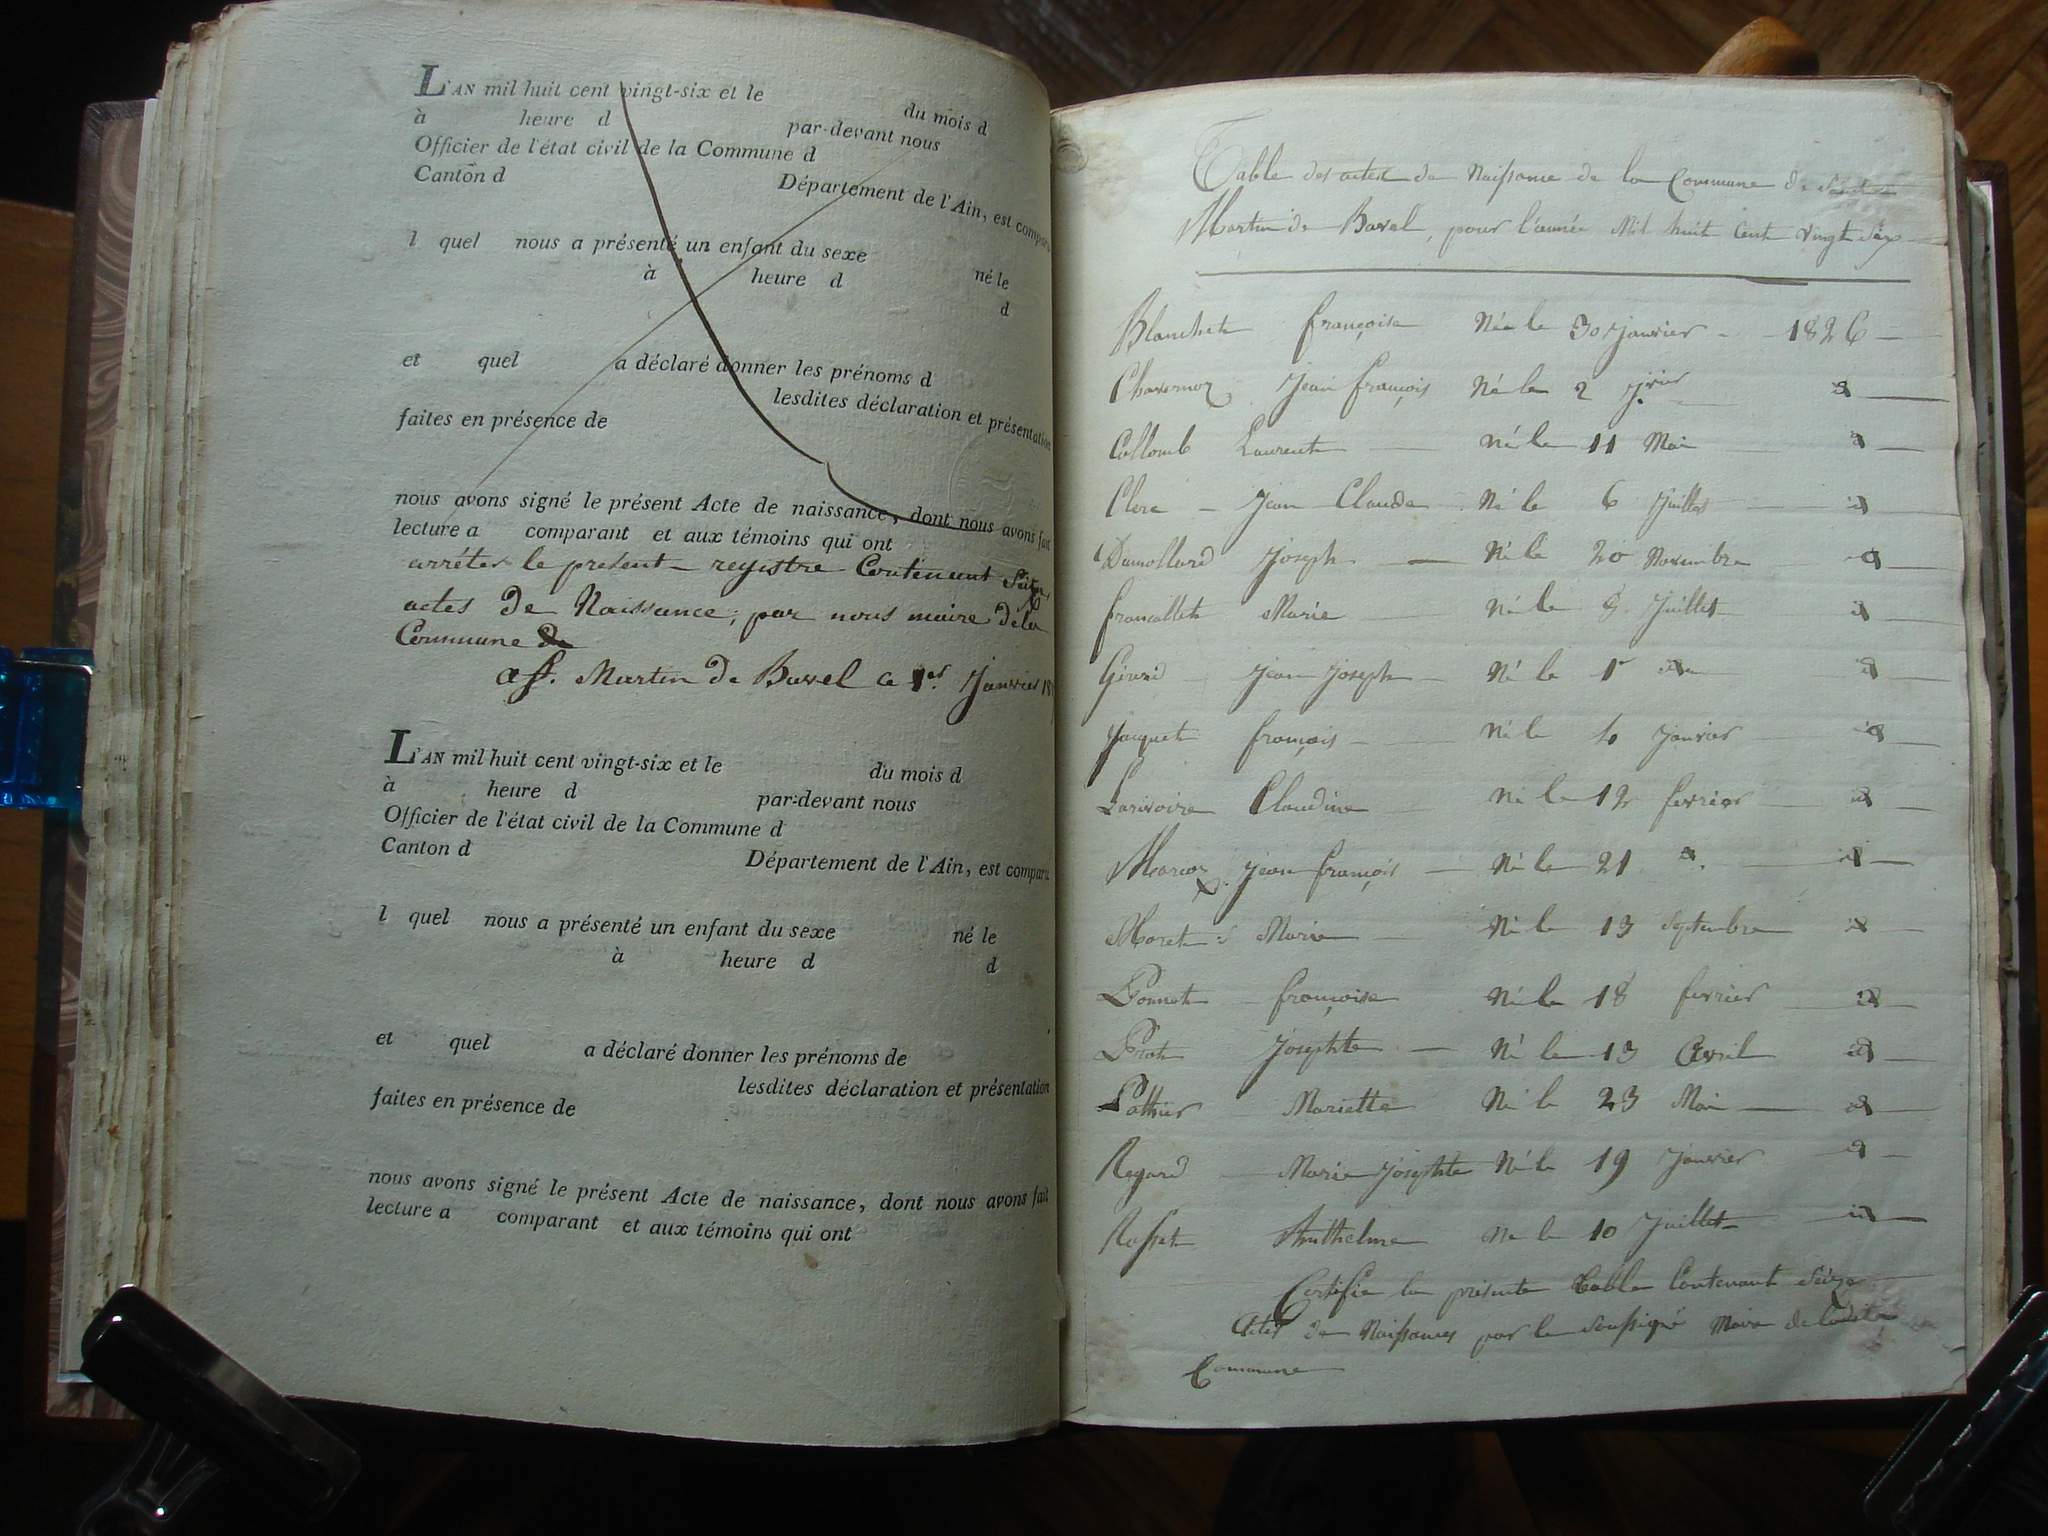 L'AN mil huit cent vingt-six et le du mois d
à heure d par-devant nous
Officier de l'état civil de la Commune d
Canton d Département de l'Ain, est comparu
l quel nous a présenté un enfant du sexe né le
à heure d d
et quel a déclaré donner les prénoms d
lesdites déclaration et présentation
faites en présence de
nous avons signé le présent Acte de naissance, dont nous avons fait
lecture a comparant et aux témoins qui ont
arrêter le présent registre Contenant Seize
actes de Naissance; par nous maire de la
Commune de
a St. Martin de Bavel ce 1er. Janvier 18
L'AN mil huit cent vingt-six et le du mois d
à heure d par-devant nous
Officier de l'état civil de la Commune d
Canton d Département de l'Ain, est comparu
l quel nous a présenté un enfant du sexe né le
à heure d d
et quel a déclaré donner les prénoms de
lesdites déclaration et présentation
faites en présence de
nous avons signé le présent Acte de naissance, dont nous avons fait
lecture a comparant et aux témoins qui ont
Table des actes de Naissance de la Commune de
Martin de Bavel, pour l'année Mil huit Cent vingt Six
Blanchet françoise Née le 30 janvier 1826
Chavornoz Jean françois Né le 2 jvier id
Collomb Laurent né le 11 Mai id
Clerc Jean Claude Né le 6 Juillet id
Dumollard Joseph Né le 20 Novembre id
francallet Marie Né le 8 Juillet id
Girard Jean Joseph Né le 1er id
Jacquet françois Né le 10 Janvier id
Larivoire Claudine Né le 12 fevrier id
Marcoz Jean françois Né le 21 id id
Moret Marie Né le 13 Septembre id
Ponnet françoise Né le 18 fevrier id
Prost Josephte Né le 13 Avril id
Pothier Mariette Né le 23 Mai id
Regard Marie Josephte Né le 19 Janvier id
Rosset Anthelme Né le 10 Juillet id
Certifie la présente Table Contenant Seize
Actes de Naissances par le soussigné Maire de ladite
Commune